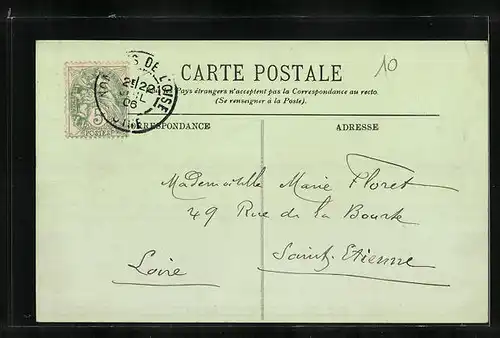 CARTE POSTALE
10
Pays étrangers n'acceptent pas la Correspondance au recto.
(Se renseigner à la Poste).
CORRESPONDANCE
ADRESSE
DE L'OISE
06
POSTES
Mademoiselle Marie Floret
49 Rue de la Bourse
Saint Etienne
Loire